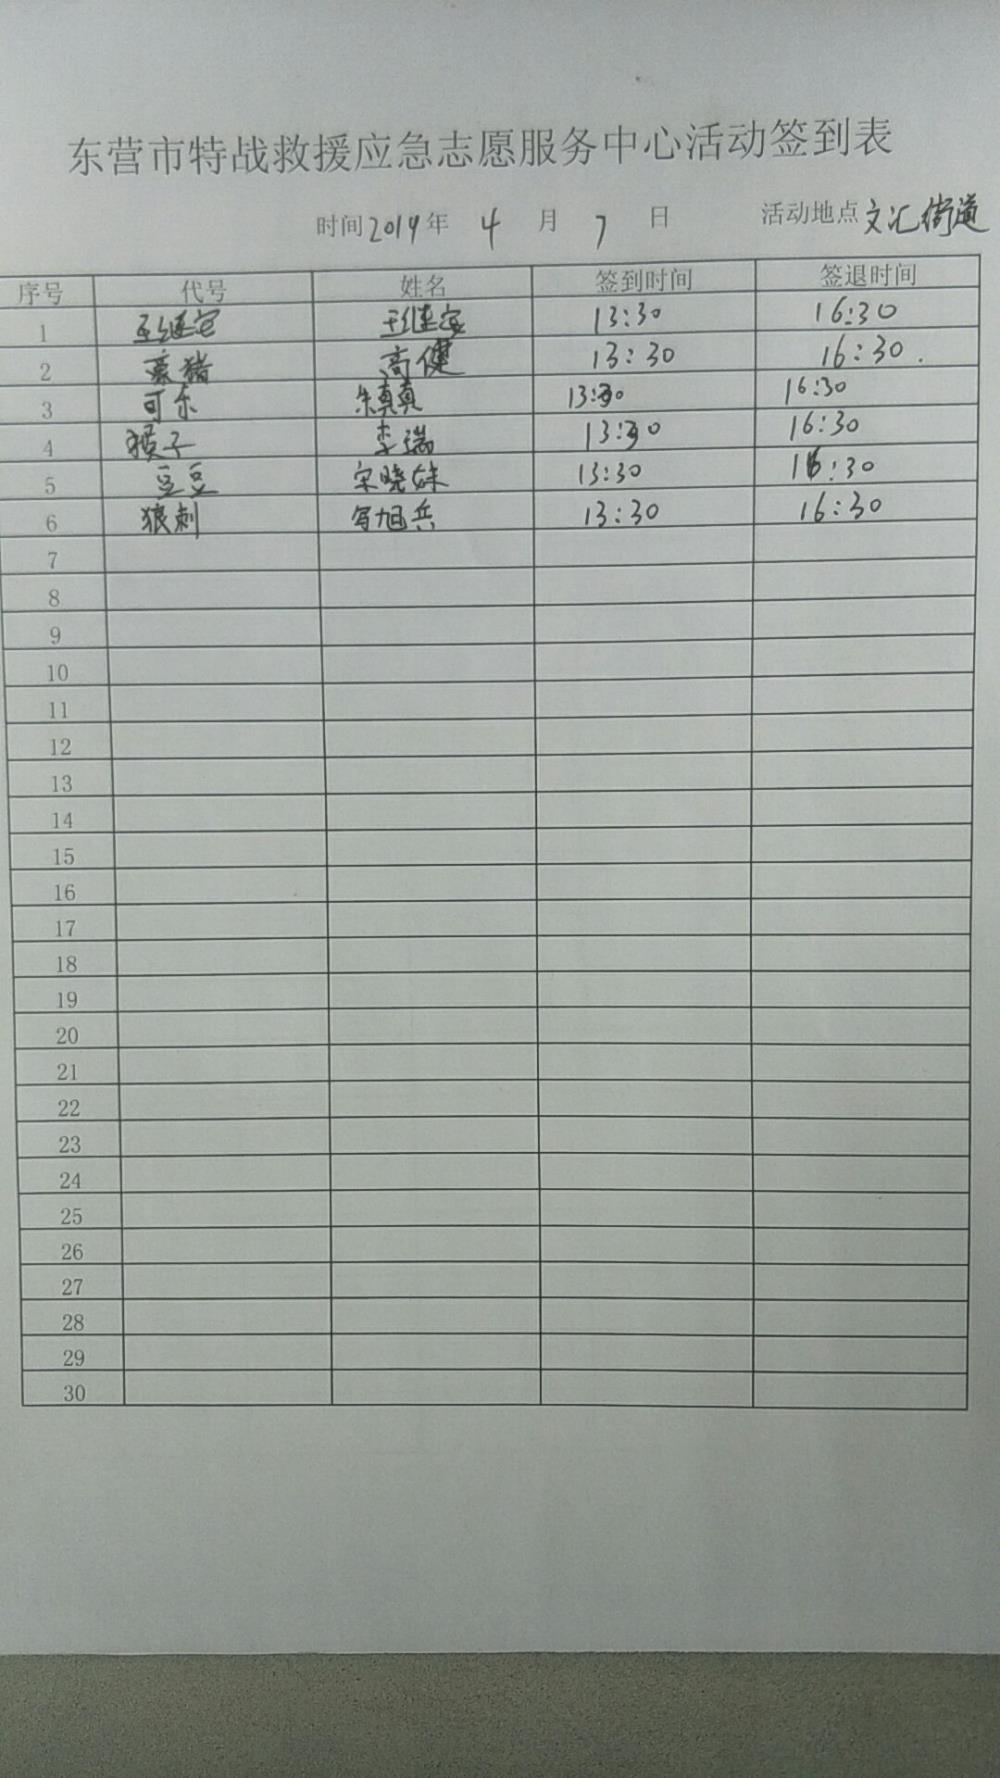 东营市特战救援应急志愿服务中心活动签到表
时间2019年 4 月 7 日 活动地点 文汇街道
序号 代号 姓名 签到时间 签退时间
1 王继安 王继安 13:30 16:30
2 豪猪 高健 13:30 16:30.
3 可乐 朱真真 13:30 16:30
4 猴子 李瑞 13:30 16:30
5 豆豆 宋晓妹 13:30 16:30
6 狼刺 旭兵 13:30 16:30
7
8
9
10
11
12
13
14
15
16
17
18
19
20
21
22
23
24
25
26
27
28
29
30